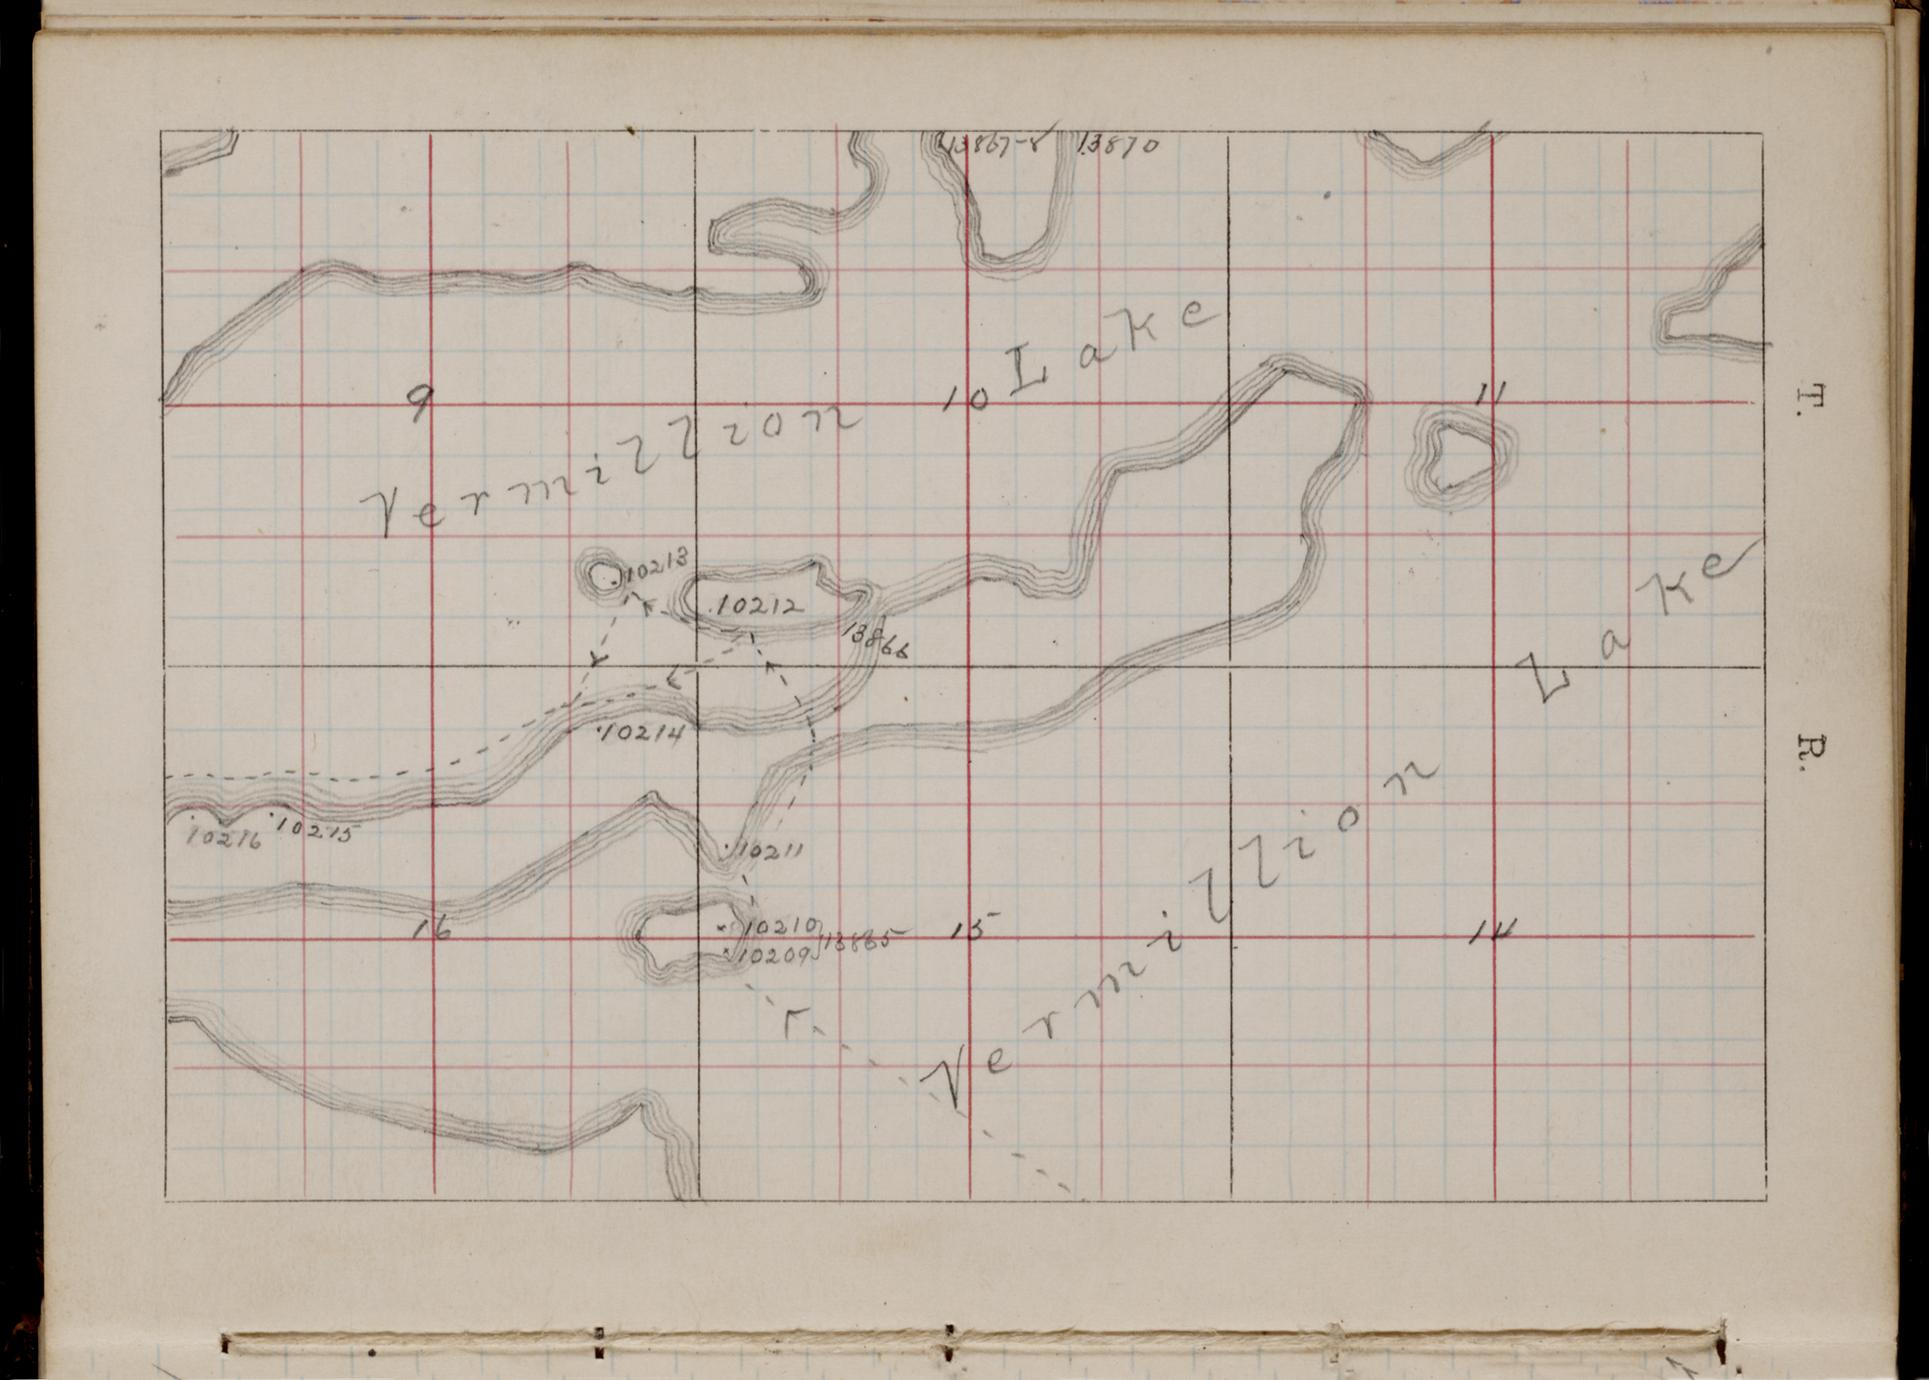 13867-8 13870
Vermillion Lake
9
10
11
T.
10213
10212
13866
Vermillion Lake
R.
10214
10216
10215
10211
16
10210
10209
13865
15
14